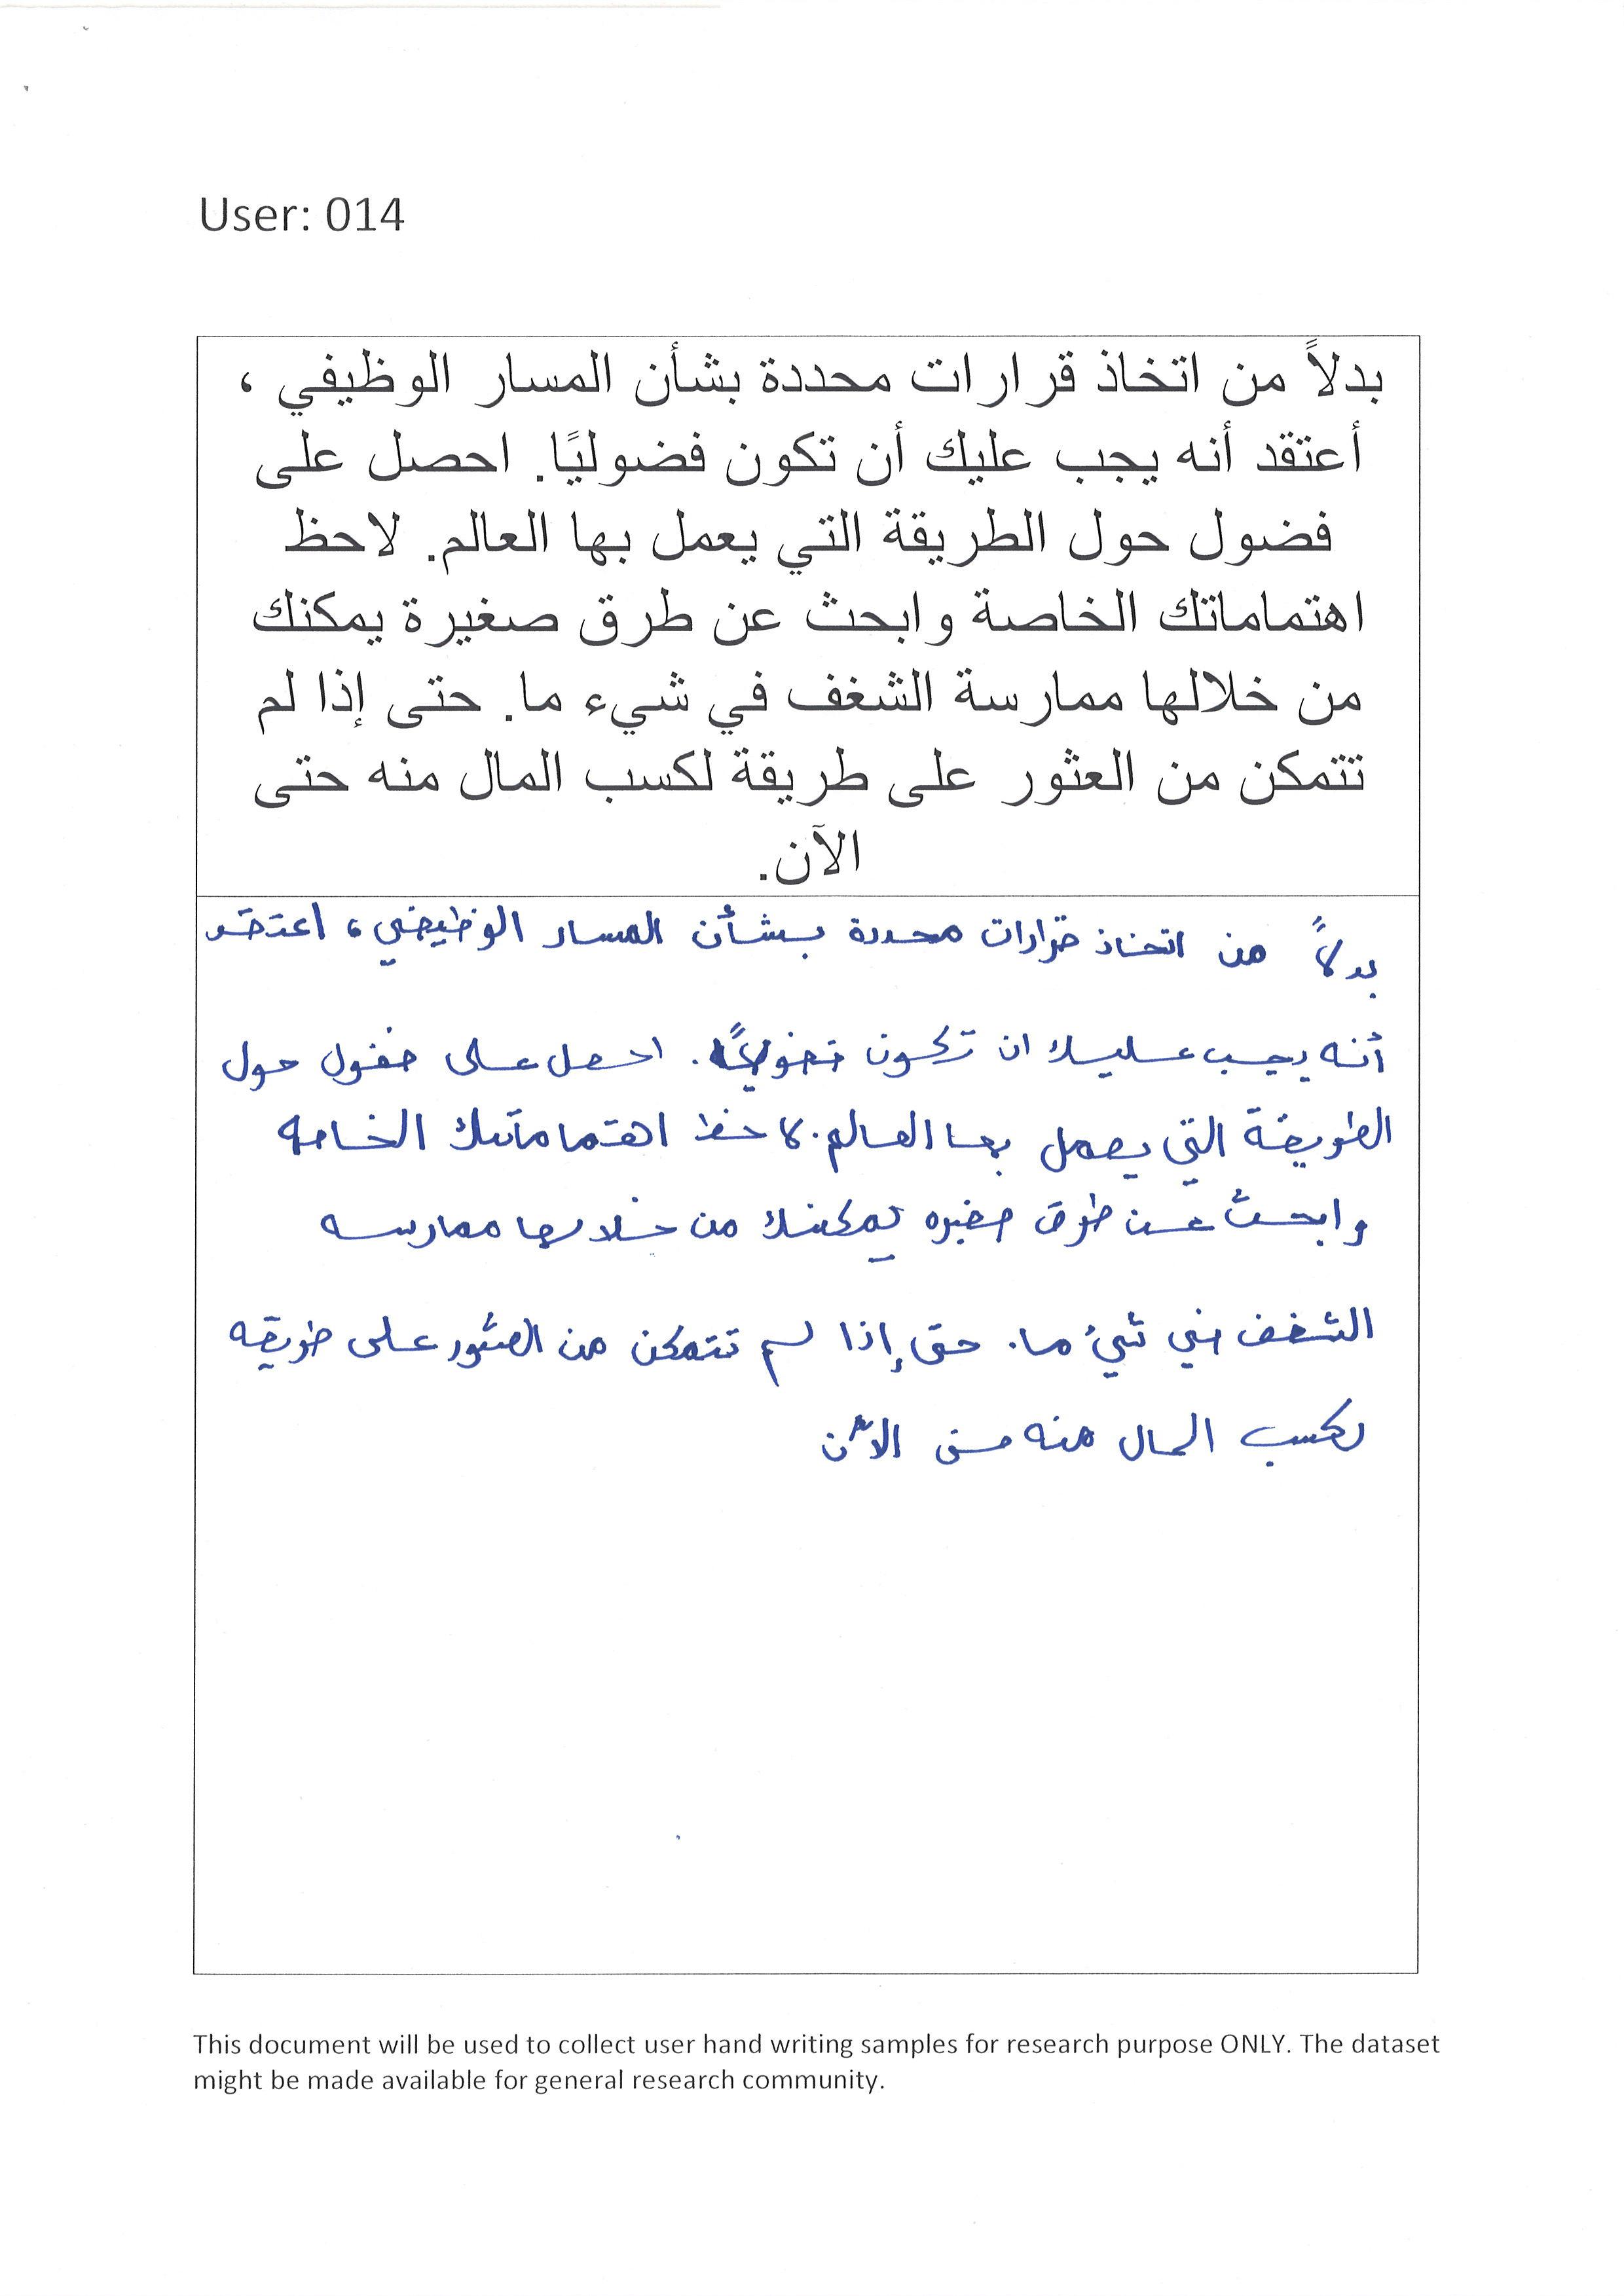 User: 014
بدلاً من اتخاذ قرارات محددة بشأن المسار الوظيفي ،
أعتقد أنه يجب عليك أن تكون فضوليًا. احصل على
فضول حول الطريقة التي يعمل بها العالم. لاحظ
اهتماماتك الخاصة وابحث عن طرق صغيرة يمكنك
من خلالها ممارسة الشغف في شيء ما. حتى إذا لم
تتمكن من العثور على طريقة لكسب المال منه حتى
الآن.
بدلاً من اتخاذ قرارات محددة بشأن المسار الوظيفي، اعتقد
أنه يجب عليك ان تكون فضوليًا. احصل على فضول حول
الطريقة التي يعمل بها العالم. لاحظ اهتماماتك الخاصه
وابحث عن طرق صغيره يمكنك من خلالها ممارسه
الشغف في شيئ ما. حتى إذا لم تتمكن من العثور على طريقه
لكسب المال منه حتى الآن
This document will be used to collect user hand writing samples for research purpose ONLY. The dataset
might be made available for general research community.